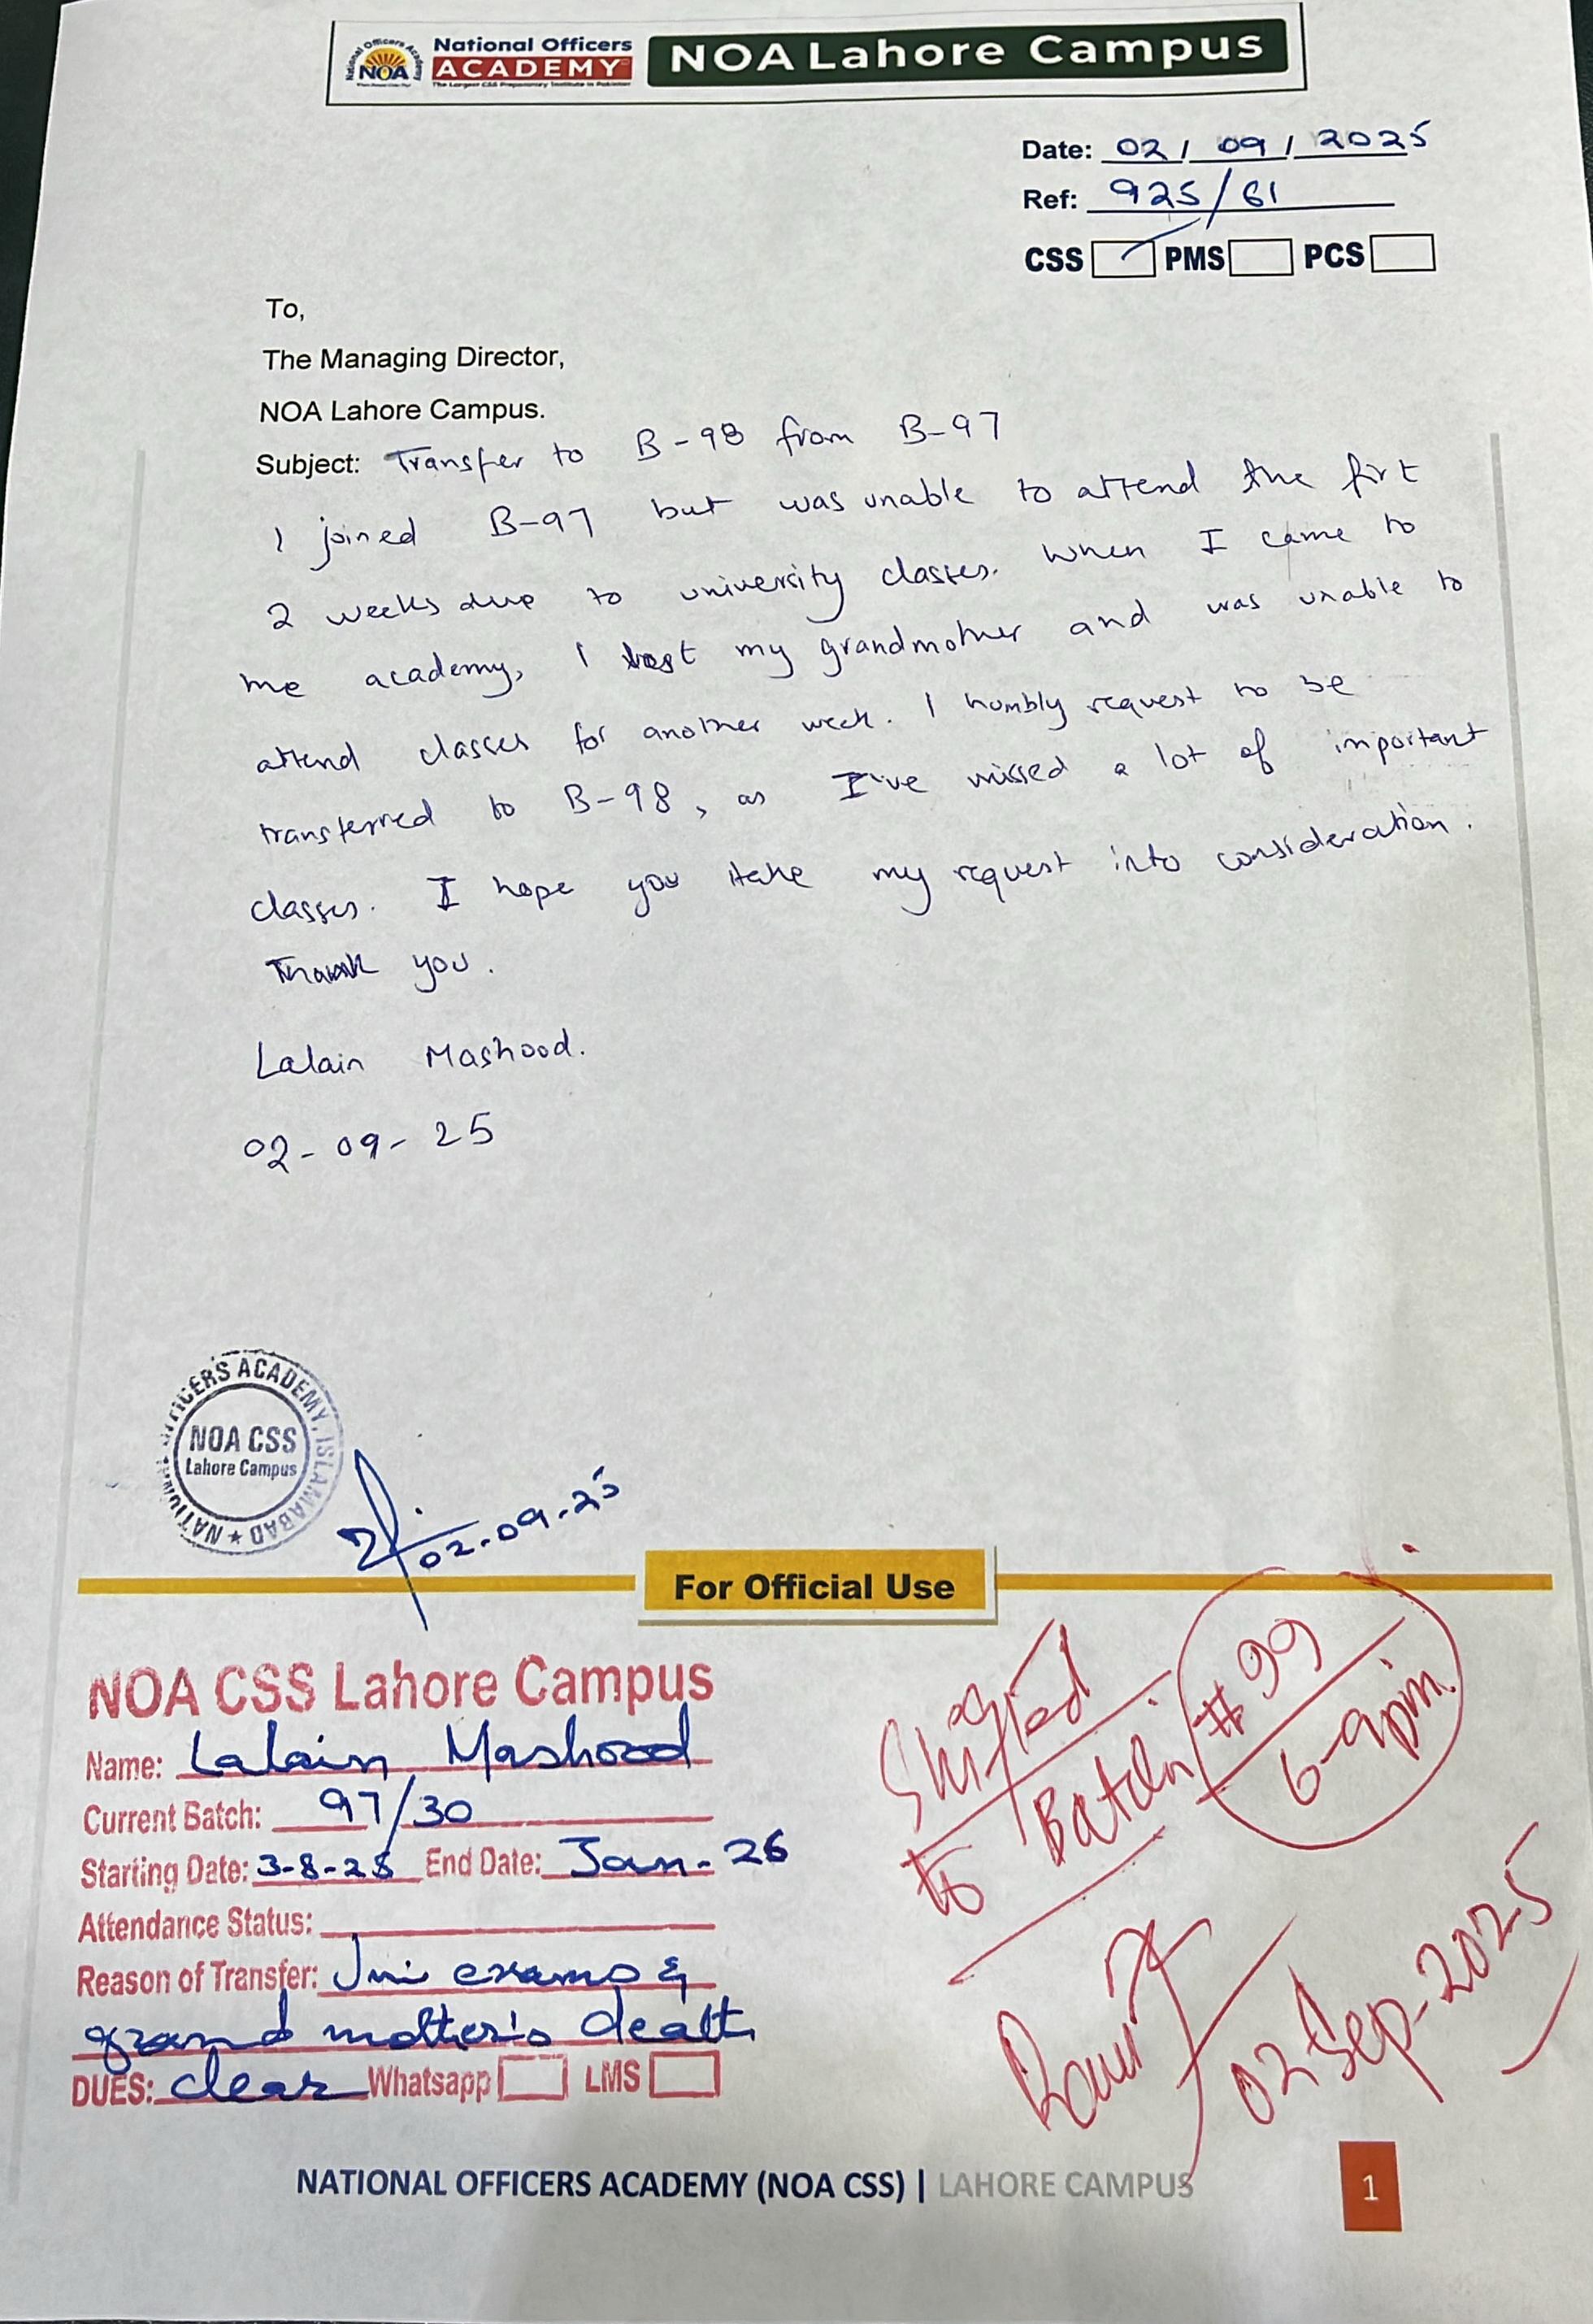 National Officers Academy
NOA
National Officers
ACADEMY
The Largest CSS Preparatory Institute in Pakistan
NOA Lahore Campus
Date: 02/ 09 / 2025
Ref: 925/61
CSS PMS PCS
To,
The Managing Director,
NOA Lahore Campus.
Subject: Transfer to B-98 from B-97
I joined B-97 but was unable to attend the firt
2 weeks due to university classes. When I came to
the academy, I lost my grandmother and was unable to
attend classes for another week. I humbly request to be
transferred to B-98, as I've missed a lot of important
classes. I hope you take my request into consideration.
Thank you.
Lalain Mashood.
02-09-25
NATIONAL OFFICERS ACADEMY, ISLAMABAD ★
NOA CSS
Lahore Campus
02-09-25
For Official Use
NOA CSS Lahore Campus
Name: Lalain Mashood
Current Batch: 97/30
Starting Date: 3-8-25 End Date: Jan-26
Attendance Status:
Reason of Transfer: Uni exams &
grand mother's death
DUES: clear Whatsapp LMS
Shifted
to Batch #99
6-9pm
02 Sep-2025
NATIONAL OFFICERS ACADEMY (NOA CSS) | LAHORE CAMPUS
1